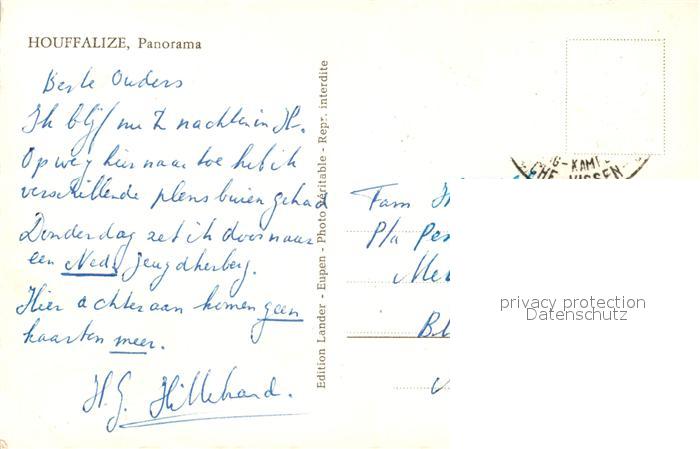 HOUFFALIZE, Panorama
Beste Ouders
Ik blijf nu 2 nachten in H.
Op weg hier naar toe heb ik
verschillende plensbuien gehad
Donderdag zet ik door naar
een Ned. Jeugdherberg.
Hier achteraan komen geen
kaarten meer.
H.G. Hillebrand.
Edition Lander - Eupen - Photo Véritable - Repr. interdite
Fam H
P/a Pes
Me
Bl
privacy protection
Datenschutz